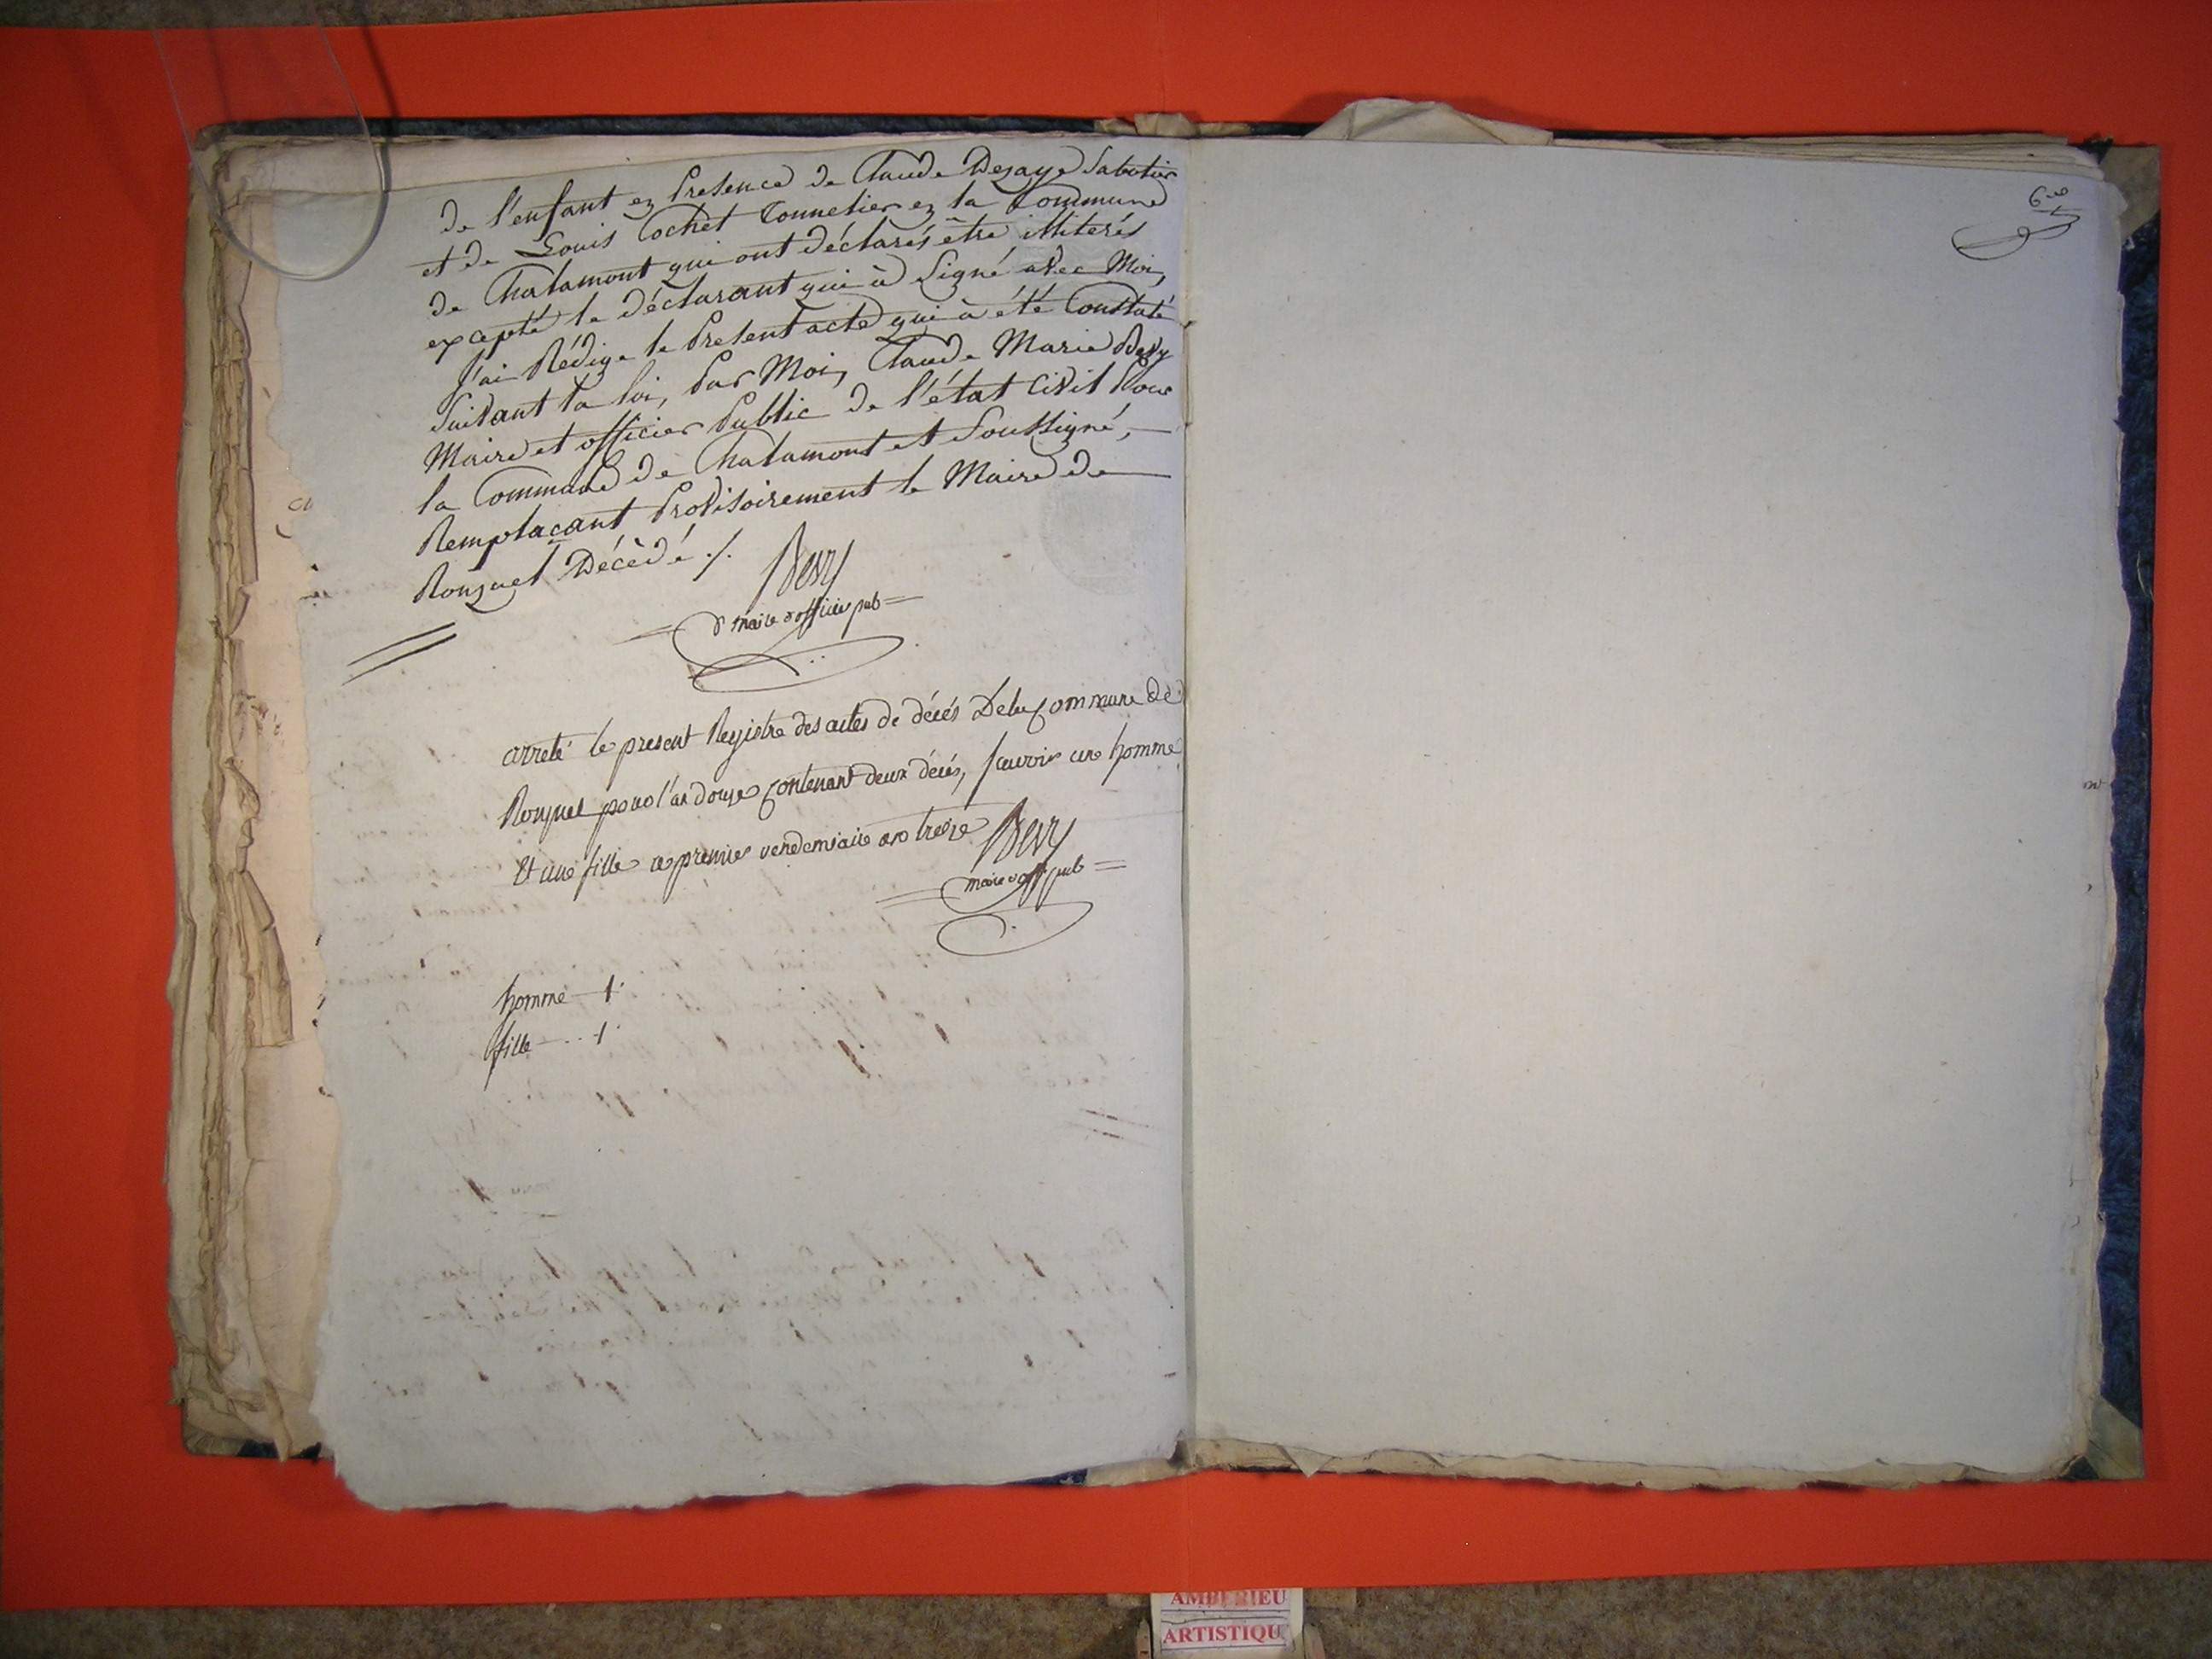 de l'enfant en Presence de Claude Degaye Sabotier
et de Louis Cochet Tonnelier en la Commune
de Chalamont qui ont déclarés être illiterés
excepté le déclarant qui à Signé avec Moi,
J'ai Rédigé le Present acte qui à été Constaté
Suivant la loi, Par Moi, Claude Marie Bevy
Maire et officier Public de l'état Civil Pour
la Commune de Chalamont et Soussigné,
Remplaçant Provisoirement le Maire de
Ronzuel Décèdé ./.
Bevy
maire & officier pub
arreté le present Registre des actes de décés De la Commune de
Ronzuel pour l'an douze Contenant deux décés, scavoir un homme
Et une fille ce premier vendemiaire an treize
Bevy
maire & off pub
homme 1
fille 1
6
AMBERIEU
ARTISTIQU